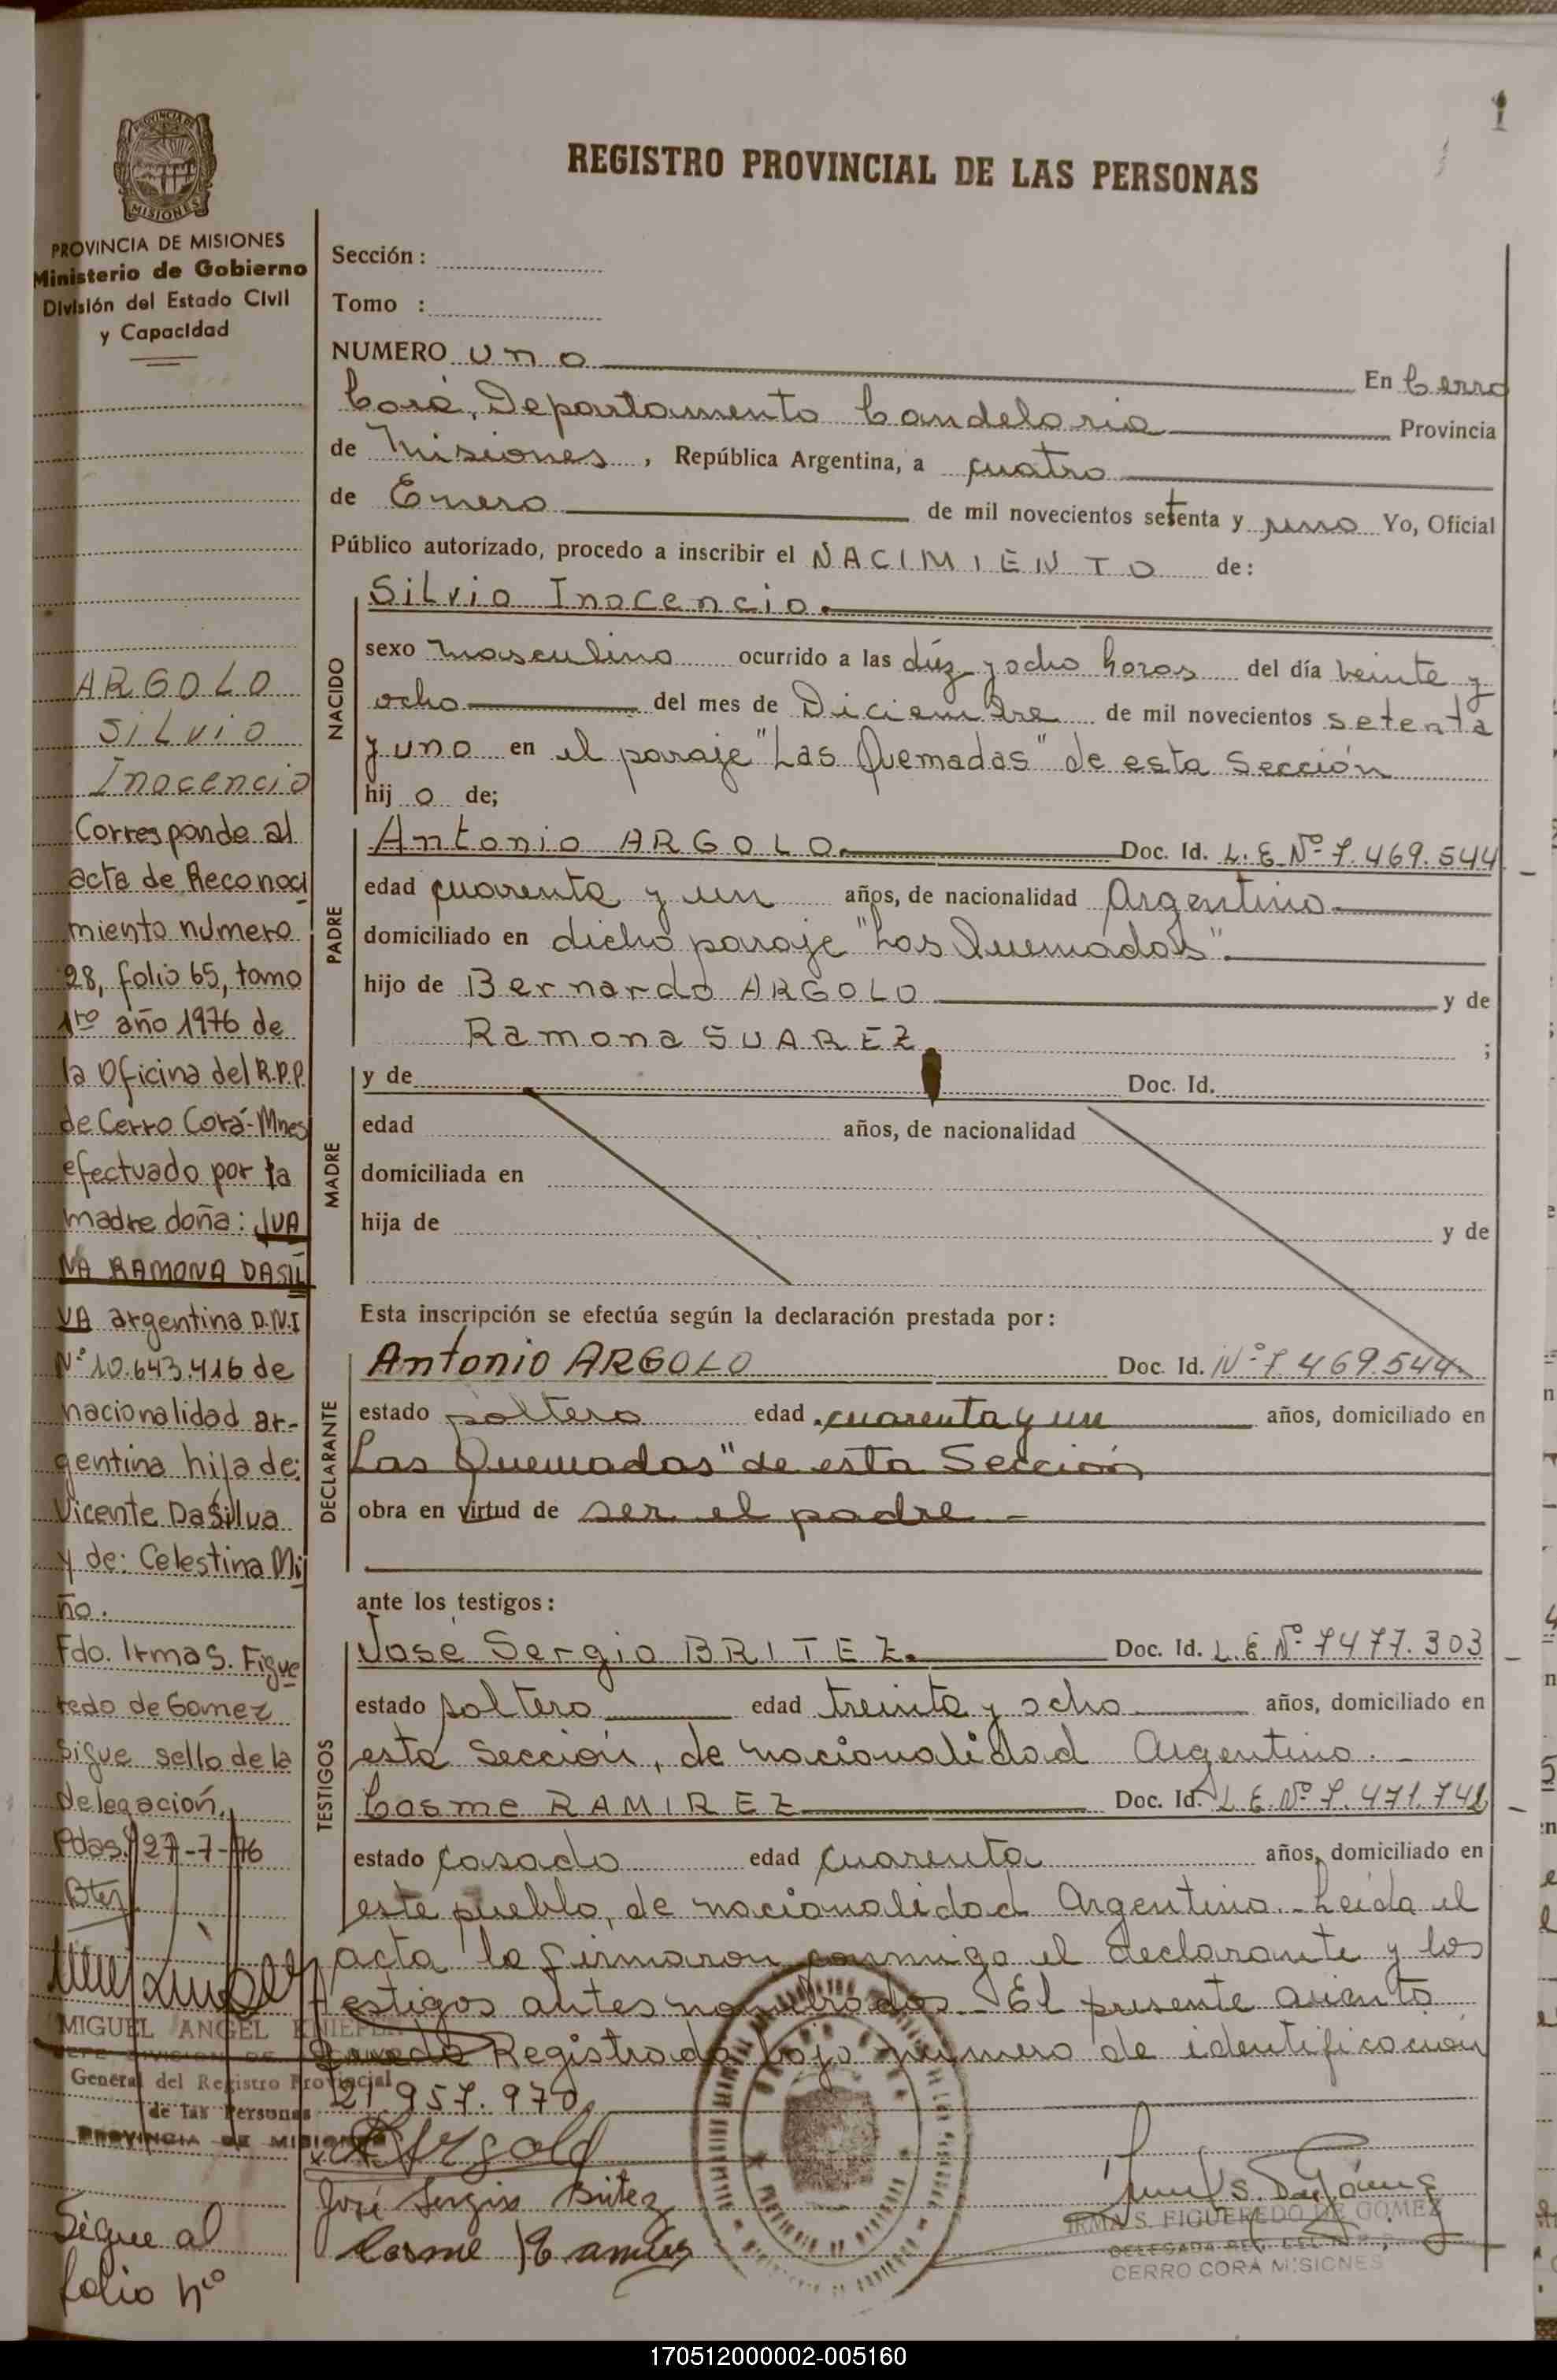 REGISTRO PROVINCIAL DE LAS PERSONAS
PROVINCIA DE
MISIONES
PROVINCIA DE MISIONES
Ministerio de Gobierno
División del Estado Civil
y Capacidad
ARGOLO
Silvio
Inocencio
Corresponde al
acta de Reconoci
miento número
28, folio 65, tomo
1ro año 1976 de
la Oficina del R.P.P.
de Cerro Corá-Mnes
efectuado por la
madre doña: JUA
NA RAMONA DASIL
VA argentina D.N.I
N° 10.643.416 de
nacionalidad ar-
gentina hija de:
Vicente DaSilva
y de: Celestina Mi
ño.
Fdo. Irma S. Figue
redo de Gomez
Sigue sello de la
delegación.
Pdas. 27-7-76
MIGUEL ANGEL
General del Registro Provincial
de las Personas
PROVINCIA DE MISIONES
Sigue al
folio
Sección :
Tomo :
NUMERO uno En Cerro
Corá, Departamento Candelaria Provincia
de Misiones, República Argentina, a cuatro
de Enero de mil novecientos setenta y uno Yo, Oficial
Público autorizado, procedo a inscribir el NACIMIENTO de:
NACIDO
Silvio Inocencio.
sexo masculino ocurrido a las diéz y ocho horas del día veinte y
ocho del mes de Diciembre de mil novecientos setenta
y uno en el paraje "Las Quemadas" de esta Sección
hij o de;
PADRE
Antonio ARGOLO. Doc. Id. L. E. N° 7.469.544
edad cuarenta y un años, de nacionalidad Argentino.
domiciliado en dicho paraje "Las Quemadas".
hijo de Bernardo ARGOLO y de
Ramona SUAREZ ;
MADRE
y de Doc. Id.
edad años, de nacionalidad
domiciliada en
hija de y de
Esta inscripción se efectúa según la declaración prestada por:
DECLARANTE
Antonio ARGOLO Doc. Id. N° 7.469.544
estado soltero edad cuarenta y un años, domiciliado en
Las Quemadas" de esta Sección
obra en virtud de ser el padre -
ante los testigos:
TESTIGOS
José Sergio BRITEZ. Doc. Id. L. E. N° 7477.303
estado soltero edad treinta y ocho años, domiciliado en
esta Sección, de nacionalidad Argentino. -
Cosme RAMIREZ Doc. Id. L. E. N° 7.471.742
estado casado edad cuarenta años, domiciliado en
este pueblo, de nacionalidad Argentino. - Leída el
acta la firmaron conmigo el declarante y los
testigos antes nombrados. El presente asiento
queda Registrado bajo número de identificación
21.957.970
Argolo
José Sergio Britez
Cosme Ramirez
IRMA S. FIGUEREDO DE GOMEZ
CERRO CORA MISIONES
170512000002-005160